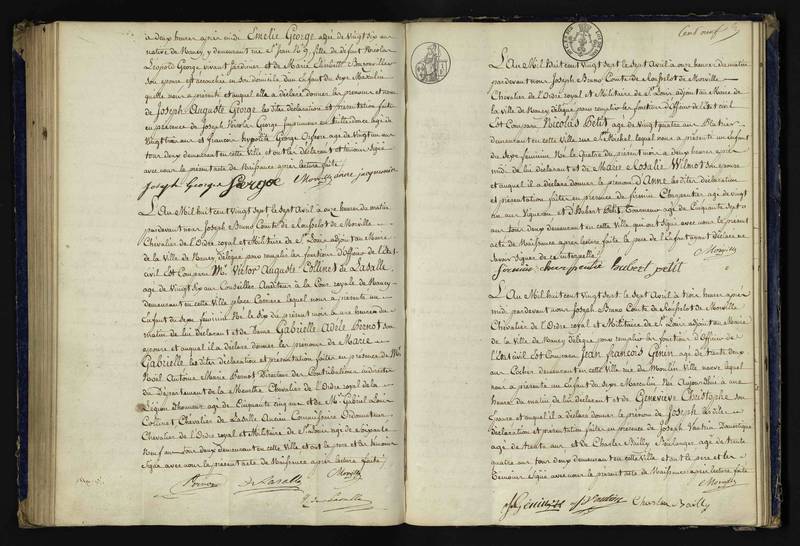 à deux heures après midi Emélie George agée de vingt six ans
native de Nancy, y demeurant rue St Jean No 9, fille de défunt Nicolas
Léopold George vivant Jardinier et de Marie Elisabeth
son épouse est accouchée en son domicile d'un Enfant du sexe Masculin
quelle nous a présenté et auquel elle a déclaré donner les prénoms et nom
de Joseph Auguste George, les dites déclaration et présentation faites
en présence de Joseph Nicolas George agé de
vingt trois ans et françois hypolite George Orfèvre agé de vingt un ans
tous deux demeurant en cette Ville et ont les déclarant et témoins signé
avec nous le présent acte de Naissance après lecture faite
Joseph George George Morville
L'An Mil huit cent Vingt sept le sept Avril à onze heures du matin
pardevant nous Joseph Bruno Comte de Morville
Chevalier de l'Ordre royal et Militaire de St Louis adjoint au Maire
de la Ville de Nancy délégué pour remplir les fonctions d'Officier de l'Etat
civil Est Comparu Mr Victor Auguste Collinet de Lasalle,
agé de Vingt six ans Conseiller Auditeur à la Cour royale de Nancy
demeurant en cette Ville place Carrière lequel nous a présenté un
Enfant du sexe féminin Né le six du présent mois à une heure du
matin de lui déclarant et de Dame Gabrielle Adèle Pernot son
épouse et auquel il a déclaré donner les prénoms de Marie
Gabrielle les dites déclaration et présentation faites en présence de Mr
Noël Antoine Marie Pernot Directeur des Contributions indirectes
du Département de la Meurthe Chevalier de l'Ordre royal de la
Légion d'honneur agé de Cinquante cinq ans et de Mr Gabriel Louis
Collinet Chevalier de Lasalle Ancien Commissaire Ordonnateur
Chevalier de l'Ordre royal et Militaire de St Louis agé de soixante
neuf ans tous deux demeurant en cette Ville et ont le père et les témoins
signé avec nous le présent acte de Naissance après lecture faite
Morville
Pernot de Lasalle
de Lasalle
Cent neuf
L'An Mil huit cent Vingt sept le sept Avril à onze heures du matin
pardevant nous Joseph Bruno Comte de Morville
Chevalier de l'Ordre royal et Militaire de St Louis adjoint au Maire de
la Ville de Nancy délégué pour remplir les fonctions d'Officier de l'Etat civil
Est Comparu Nicolas Petit agé de Vingt quatre ans Platrier
demeurant en cette Ville rue St Michel lequel nous a présenté un Enfant
du sexe féminin Né le Quatre du présent mois à deux heures après
midi de lui déclarant et de Marie Rosalie Wilmot son épouse
et auquel il a déclaré donner le prénom d'Anne les dites déclaration
et présentation faites en présence de firmin Charpentier agé de vingt
six ans Vigneron et d'Hubert Petit Tonnelier agé de Cinquante sept ans
tous deux demeurant en cette Ville qui ont signé avec nous le présent
acte de Naissance après lecture faite, le père de l'enfant ayant déclaré ne
savoir signer de ce interpellé
Morville
firmin charpentier hubert petit
L'An Mil huit cent Vingt sept le sept Avril à trois heures après
midi pardevant nous Joseph Bruno Comte de Morville
Chevalier de l'Ordre royal et Militaire de St Louis adjoint au Maire
de la Ville de Nancy délégué pour remplir les fonctions d'Officier de
l'Etat civil Est Comparu Jean françois Génin agé de trente deux
ans Cocher demeurant en cette Ville rue du Moulin Ville neuve lequel
nous a présenté un Enfant du sexe Masculin Né Aujourd'hui à une
heure du matin de lui déclarant et de Geneviève Christophe son
épouse et auquel il a déclaré donner le prénom de Joseph les dites
déclaration et présentation faites en présence de Joseph Vautrin Domestique
agé de trente ans et de Charles Bailly Boulanger agé de trente
quatre ans tous deux demeurant en cette Ville et ont le père et les
témoins signé avec nous le présent acte de Naissance après lecture faite
Morville
jf Génin Charles Bailly